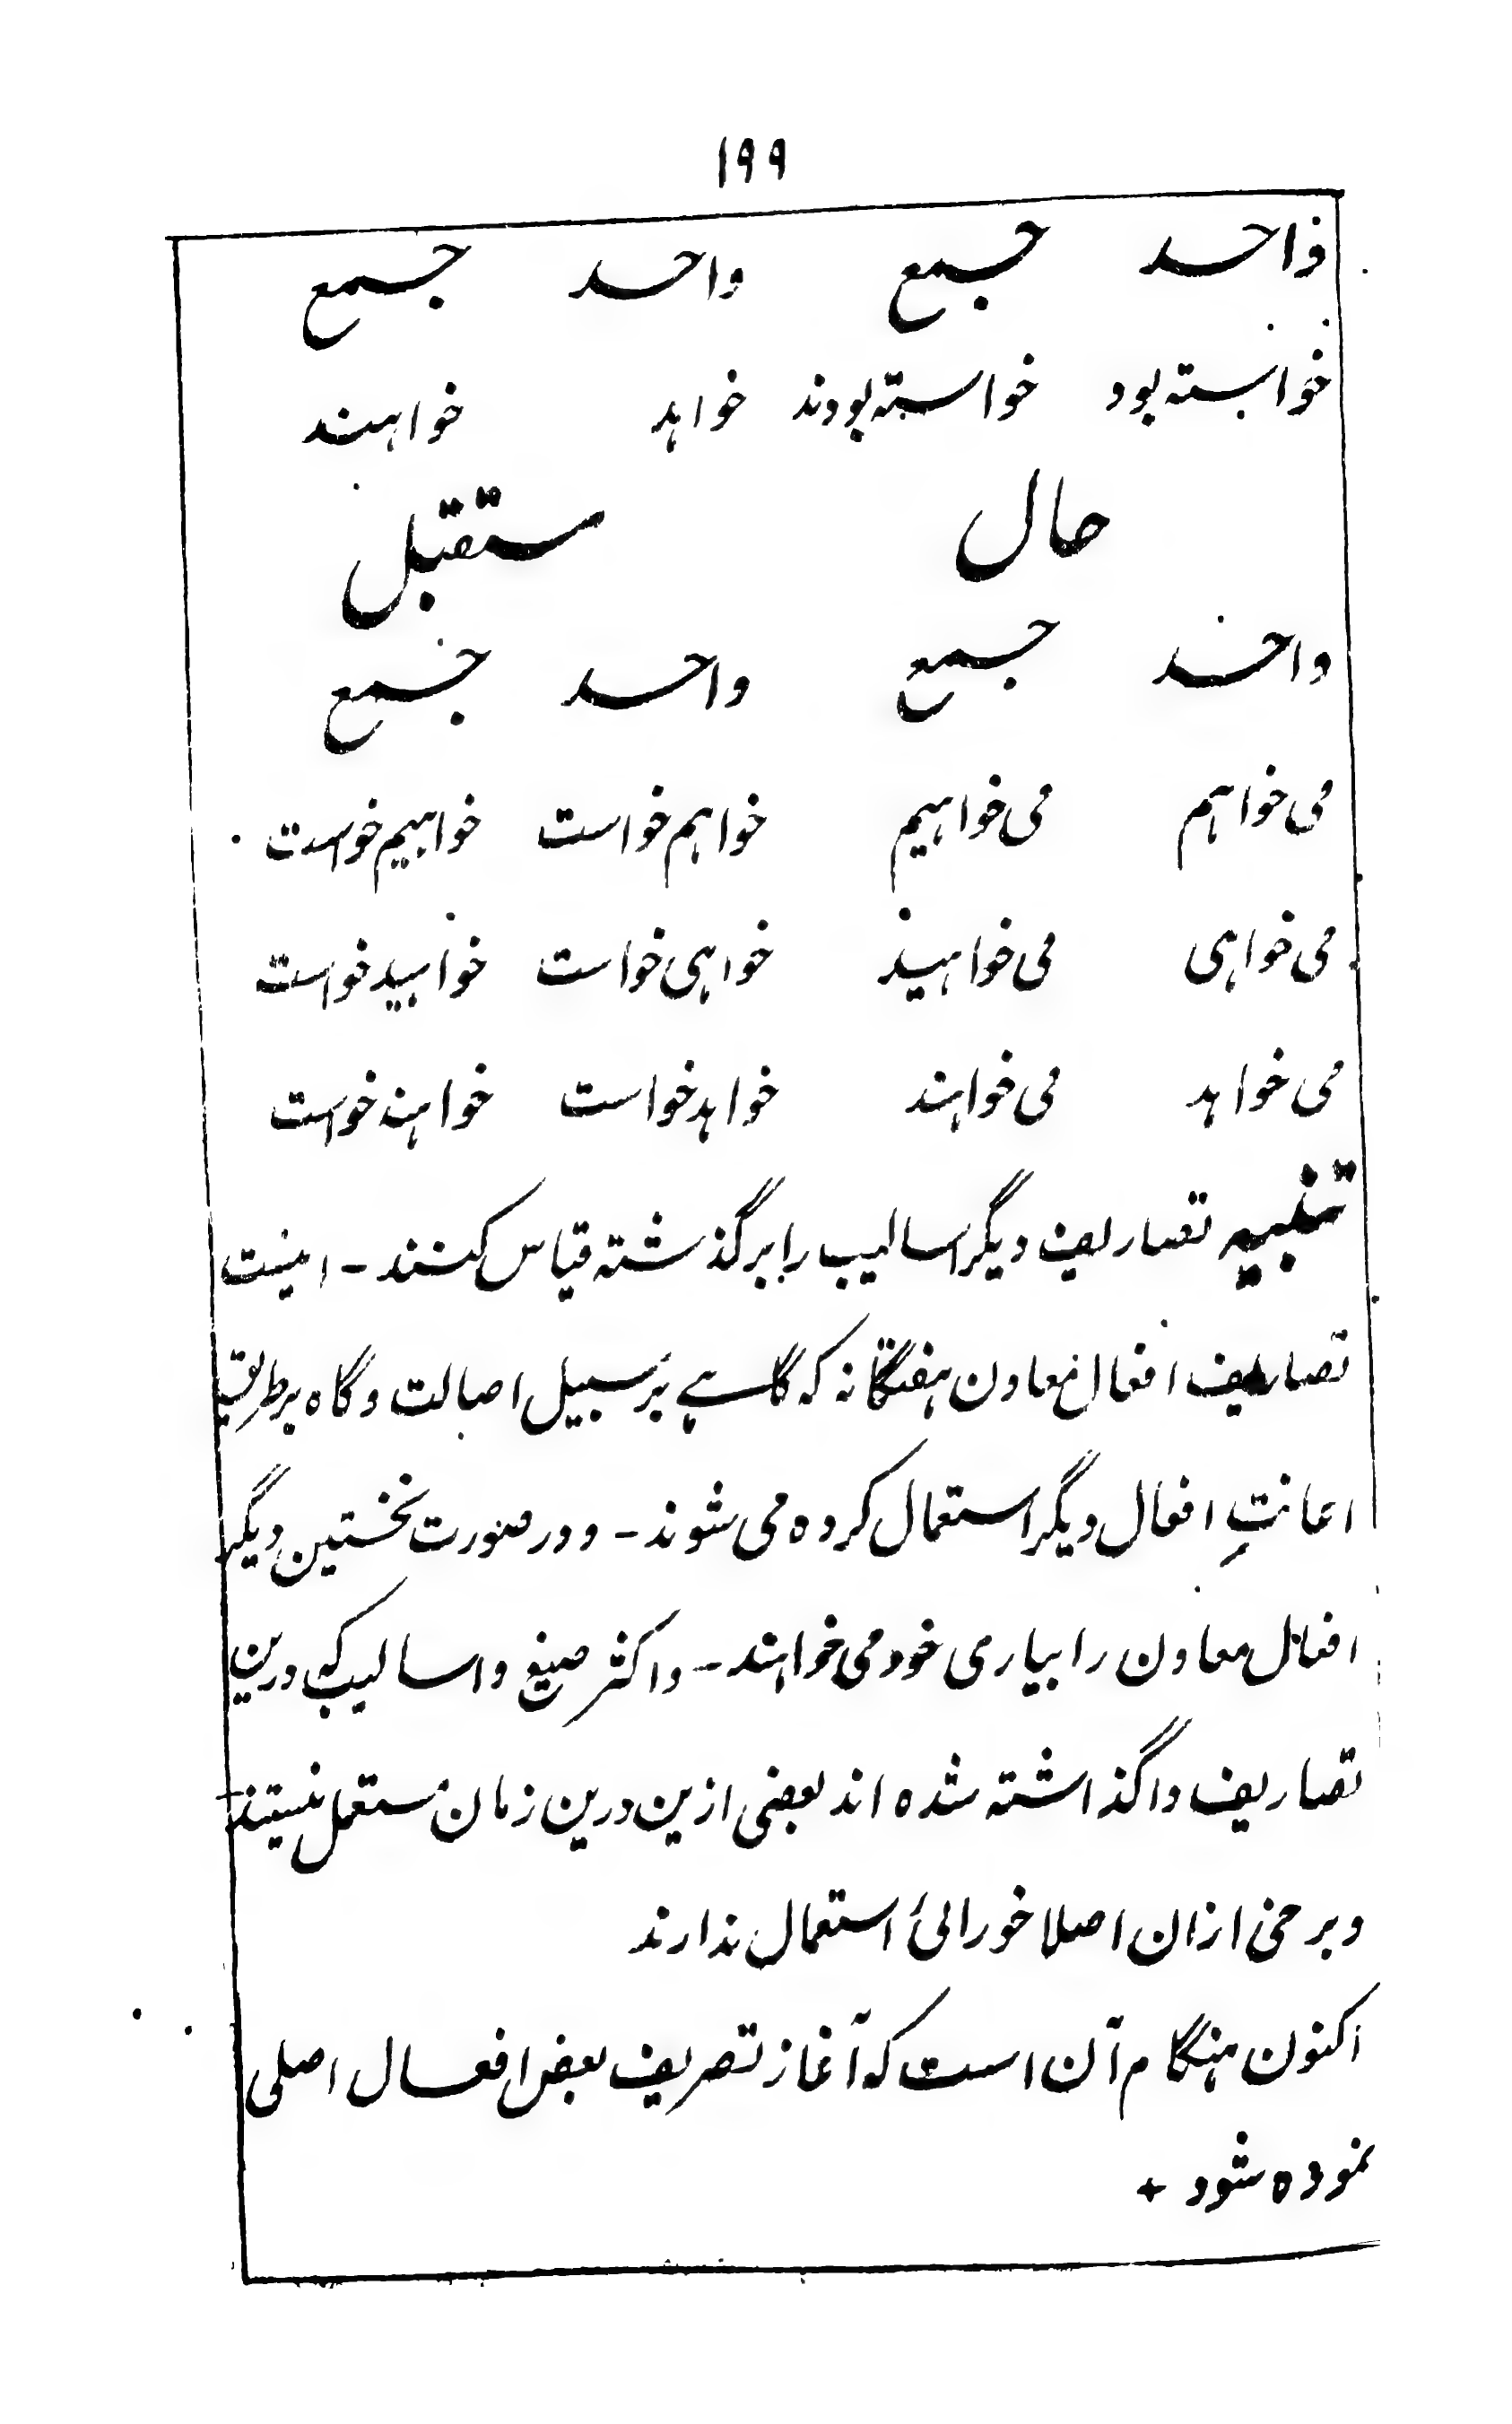 ۱۹۹
واحد جمع واحد جمع
خواسته بود خواسته بودند خواهد خواهند
حال مستقبل
واحد جمع واحد جمع
می خواهم می خواهیم خواهم خواست خواهیم خواست
می خواهی می خواهید خواهی خواست خواهید خواست
می خواهد می خواهند خواهد خواست خواهند خواست
تنبیه تصاریف دیگر اسالیب را برگذشته قیاس کنند - اینست
تصاریف افعال معاون هفتگانه که گاهے بر سبیل اصالت و گاه بر طریق
اعانتِ افعال دیگر استعمال کرده می شوند - و در صورت نخستین دیگر
افعال معاون را بیاری خود می خواهند - و اکثر صیغ و اسالیب که درین
تصاریف واگذاشته شده اند بعضی ازین درین زمان مستعمل نیستند
و برخی ازان اصلا خورائ استعمال ندارند
اکنون هنگام آن است که آغاز تصریف بعض افعال اصلی
نموده شود +